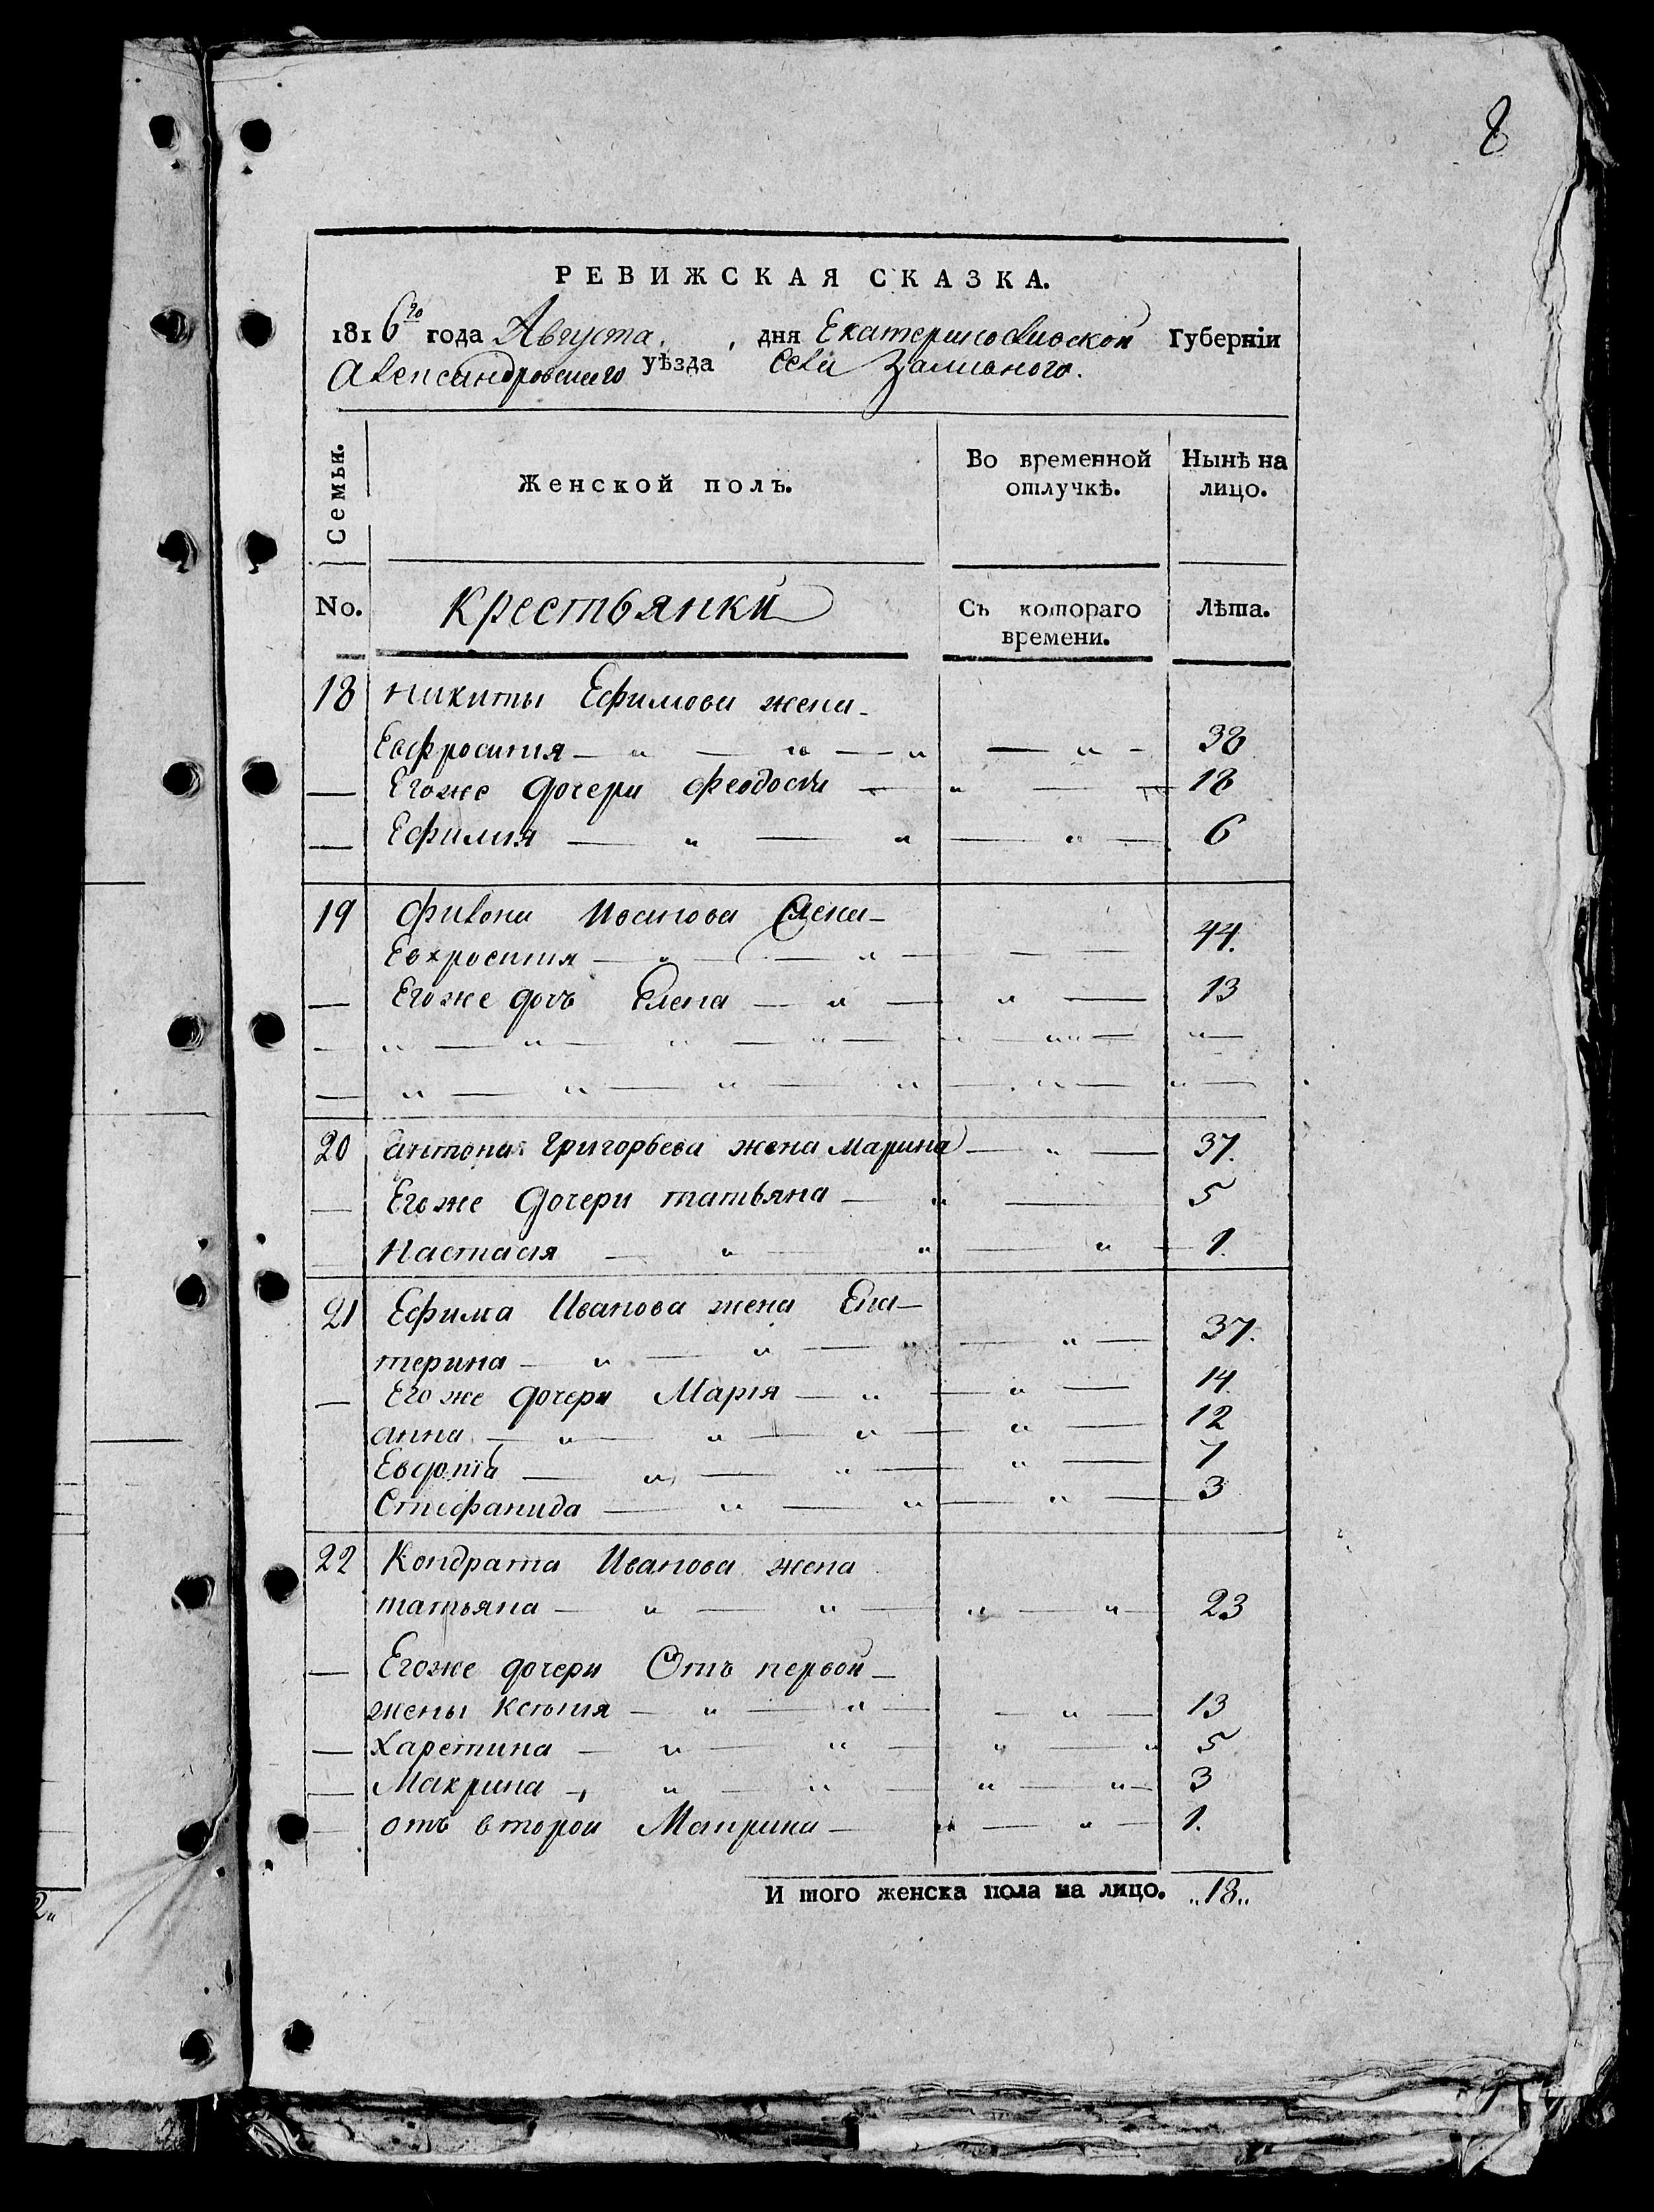 8
РЕВИЖСКАЯ СКАЗКА.
1816го года Августа, , дня Екатеринославской Губерніи
Александровскаго уѣзда Села
Семьи.
Женской полъ.
Во временной отлучкѣ.
Нынѣ на лицо.
No.
Крестьянки
Съ котораго времени.
Лѣта.
18 Никиты Ефимова жена
Евфросинія — „ — „ — „ — „ — 38
— Егоже дочери Феодосія — „ — 18
— Ефимія — „ — „ — „ — 6
19 Филона Иванова жена
Евхросинія — „ — „ — 44.
— Егоже дочь Елена — „ — „ — 13
— „ — „ — „ — „ — „ — „„ — „ —
— „ — „ — „ — „ — „ — „ —
20 Антона Григорьева жена Марина — „ — 37.
— Егоже дочери татьяна — „ — 5
Настасія — „ — „ — „ — 1.
21 Ефима Иванова жена Ека-
терина — „ — „ — „ — „ — 37.
— Его же дочери Марія — „ — „ — 14.
анна — „ — „ — „ — „ — 12
Евдотія — „ — „ — „ — 7
Стефанида — „ — „ — „ — 3
22 Кондрата Иванова жена
татьяна — „ — „ — „ — „ — 23
— Егоже дочери Отъ первой
жены Ксенія — „ — „ — „ — 13
— Харетина — „ — „ — „ — „ 5
— Макрина — „ — „ — „ — „ — 3
— отъ второй — „ — „ — 1.
И того женска пола на лицо. „18„
2„